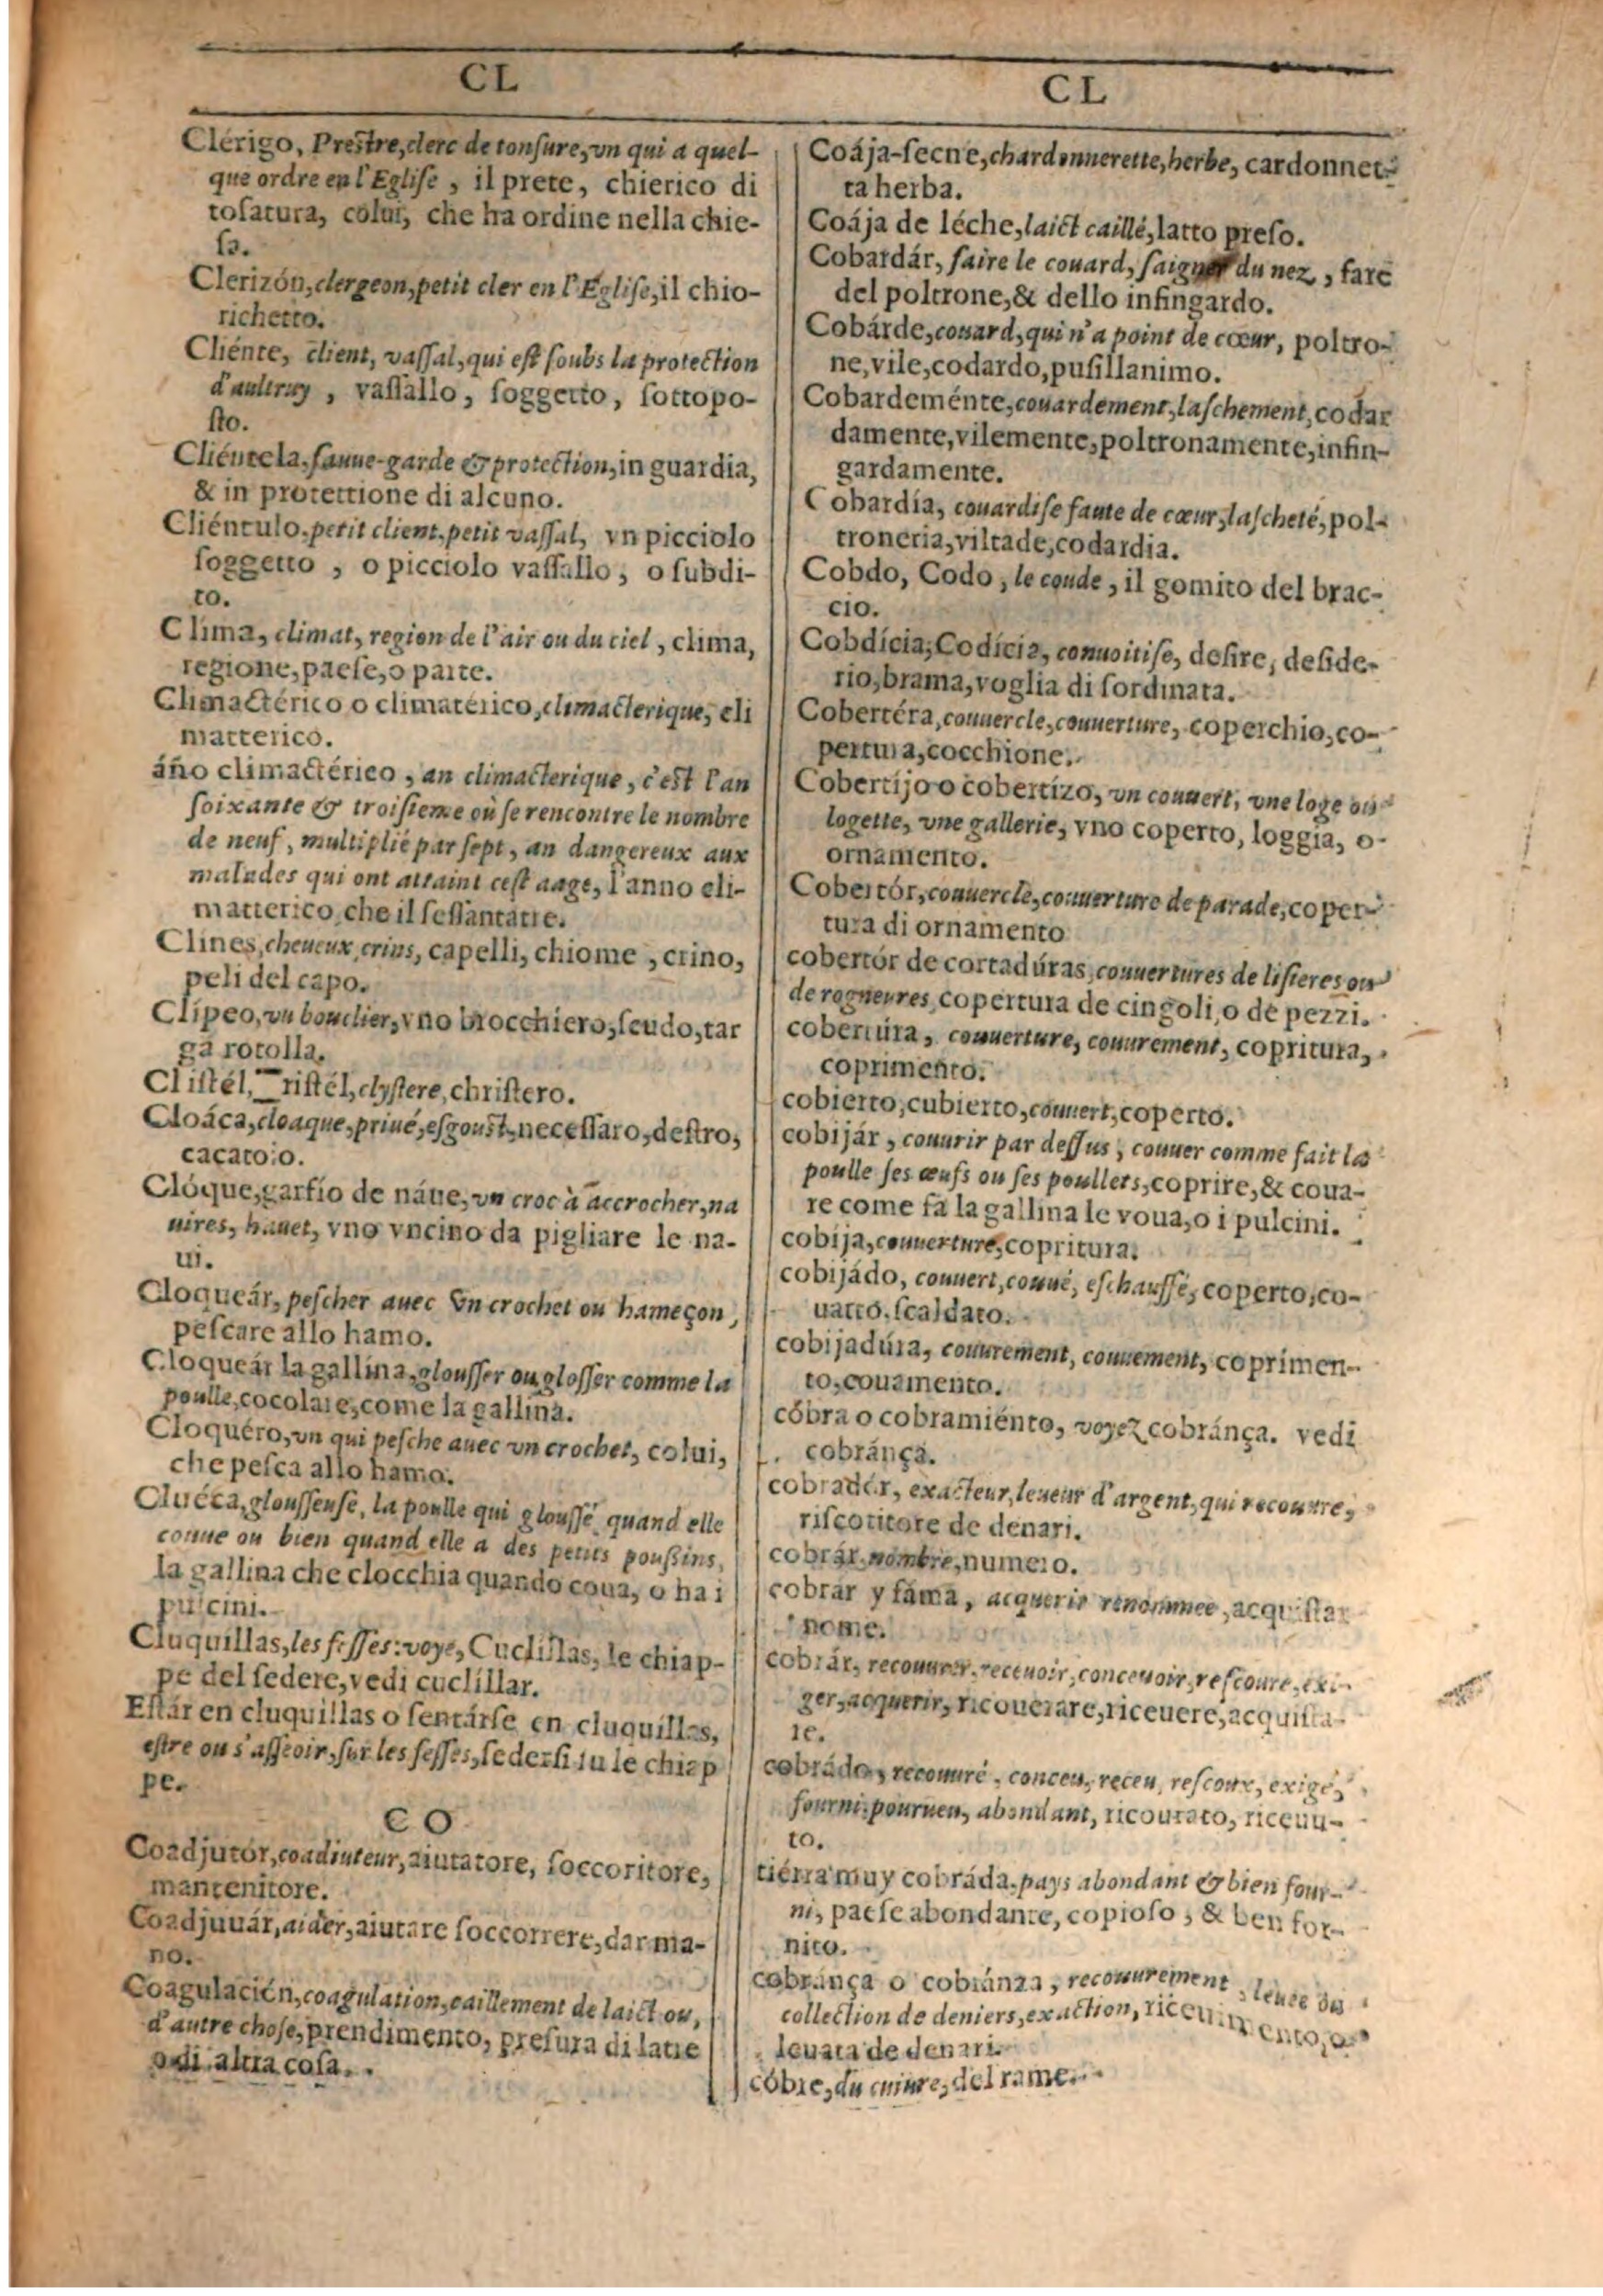 CL
Clérigo, Prestre, clerc de tonſure, vn qui a quel-
que ordre en l'Egliſe, il prete, chierico di
toſatura, colui, che ha ordine nella chie-
ſa.
Clerizón, clergeon, petit cler en l'Egliſe, il chio-
richetto.
Cliénte, client, vaſſal, qui eſt ſoubs la protection
d'aultruy, vaſſallo, ſoggetto, ſottopo-
ſto.
Cliéntela, ſauue-garde & protection, in guardia,
& in protettione di alcuno.
Cliéntulo, petit client, petit vaſſal, vn picciolo
ſoggetto, o picciolo vaſſallo, o ſubdi-
to.
Clíma, climat, region de l'air ou du ciel, clima,
regione, paeſe, o parte.
Climactérico o climatérico, climacterique, cli
matterico.
áño climactérico, an climacterique, c'eſt l'an
ſoixante & troiſieme où ſe rencontre le nombre
de neuf, multiplié par ſept, an dangereux aux
malades qui ont attaint ceſt aage, l'anno cli-
matterico che il ſeſſantatre.
Clines, cheueux, crins, capelli, chiome, crino,
peli del capo.
Clípeo, vn bouclier, vno brocchiero, ſcudo, tar
ga rotolla.
Cliſtél, riſtél, clyſtere, chriſtero.
Cloáca, cloaque, priué, eſgouſt, neceſſaro, deſtro,
cacatoio.
Clóque, garfío de náue, vn croc à accrocher, na
uires, hauet, vno vncino da pigliare le na-
ui.
Cloqueár, peſcher auec vn crochet ou hameçon,
peſcare allo hamo.
Cloqueár la gallína, glouſſer ou gloſſer comme la
poulle, cocolare, come la gallina.
Cloquéro, vn qui peſche auec vn crochet, colui,
che peſca allo hamo.
Cluéca, glouſſeuſe, la poulle qui glouſſe quand elle
couue ou bien quand elle a des petits pouſſins,
la gallina che clocchia quando coua, o ha i
pulcini.
Cluquíllas, les feſſes: voye, Cuclíllas, le chiap-
pe del ſedere, vedi cuclíllar.
Eſtár en cluquíllas o ſentárſe en cluquíllas,
eſtre ou s'aſſeoir, ſur les feſſes, ſederſi ſu le chiap
pe.
CO
Coadjutór, coadiuteur, aiutatore, ſoccoritore,
mantenitore.
Coadjuuár, aider, aiutare ſoccorrere, dar ma-
no.
Coagulación, coagulation, caillement de laict ou,
d'autre choſe, prendimento, preſura di latte
o di altra coſa.
CL
Coája-ſecne, chardonnerette, herbe, cardonnet-
ta herba.
Coája de léche, laict caillé, latto preſo.
Cobardár, faire le couard, ſaigner du nez, fare
del poltrone, & dello infingardo.
Cobárde, couard, qui n'a point de cœur, poltro-
ne, vile, codardo, puſillanimo.
Cobardeménte, couardement, laſchement, codar
damente, vilemente, poltronamente, infin-
gardamente.
Cobardía, couardiſe faute de cœur, laſcheté, pol-
troneria, viltade, codardia.
Cobdo, Codo, le coude, il gomito del brac-
cio.
Cobdícia, Codícia, conuoitiſe, deſire, deſide-
rio, brama, voglia di ſordinata.
Cobertéra, couuercle, couuerture, coperchio, co-
pertura, cocchione.
Cobertíjo o cobertízo, vn couuert, vne loge ou
logette, vne gallerie, vno coperto, loggia, o
ornamento.
Cobertór, couuercle, couuerture de parade, coper-
tura di ornamento
cobertór de cortadúras, couuertures de liſieres ou
de rogneures, copertura de cingoli, o de pezzi.
cobertúra, couuerture, couurement, copritura,
coprimento.
cobierto, cubierto, couuert, coperto.
cobijár, couurir par deſſus, couuer comme fait la
poulle ſes œufs ou ſes poullets, coprire, & coua-
re come fa la gallina le voua, o i pulcini.
cobija, couuerture, copritura.
cobijádo, couuert, couué, eſchauffé, coperto, co-
uatto, ſcaldato.
cobijadúra, couurement, couuement, coprimen-
to, couamento.
cóbra o cobramiénto, voyez cobránça. vedi
cobránça.
cobradór, exacteur, leueur d'argent, qui recouure,
riſcotitore de denari.
cobrár nombre, numero.
cobrar y fáma, acquerir renommee, acquiſtar
nome.
cobrár, recouurer, receuoir, conceuoir, reſcoure, exi-
ger, acquerir, ricouerare, riceuere, acquiſta-
re.
cobrádo, recouuré, conceu, receu, reſcoux, exigé,
fourni, pourueu, abondant, ricourato, riceuu-
to.
tiérra muy cobráda, pays abondant & bien four-
ni, paeſe abondante, copioſo, & ben for-
nito.
cobránça o cobránza, recouurement, leuee ou
collection de deniers, exaction, riceuimento, o
leuata de denari.
cóbre, du cuiure, del rame.